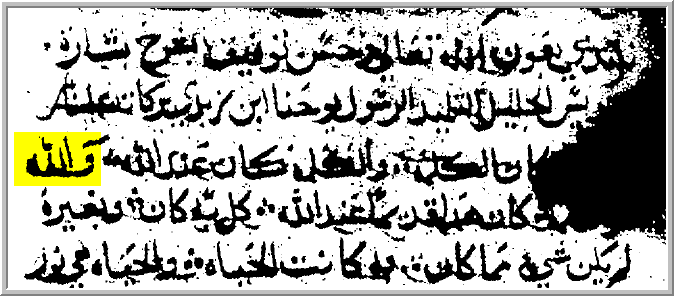 نبتدي بعون الله تعالى وحسن توفيقه بشرح بشارة
الجليل التلميذ الرسول يوحنا ابن زبدي بركاته علينا
كان الكلمه والكلمه كان عند الله والله
كان هذا عند الله كل به كان وبغيره
لم يكن شي مما كان به كانت الحياه والحياه هي نور